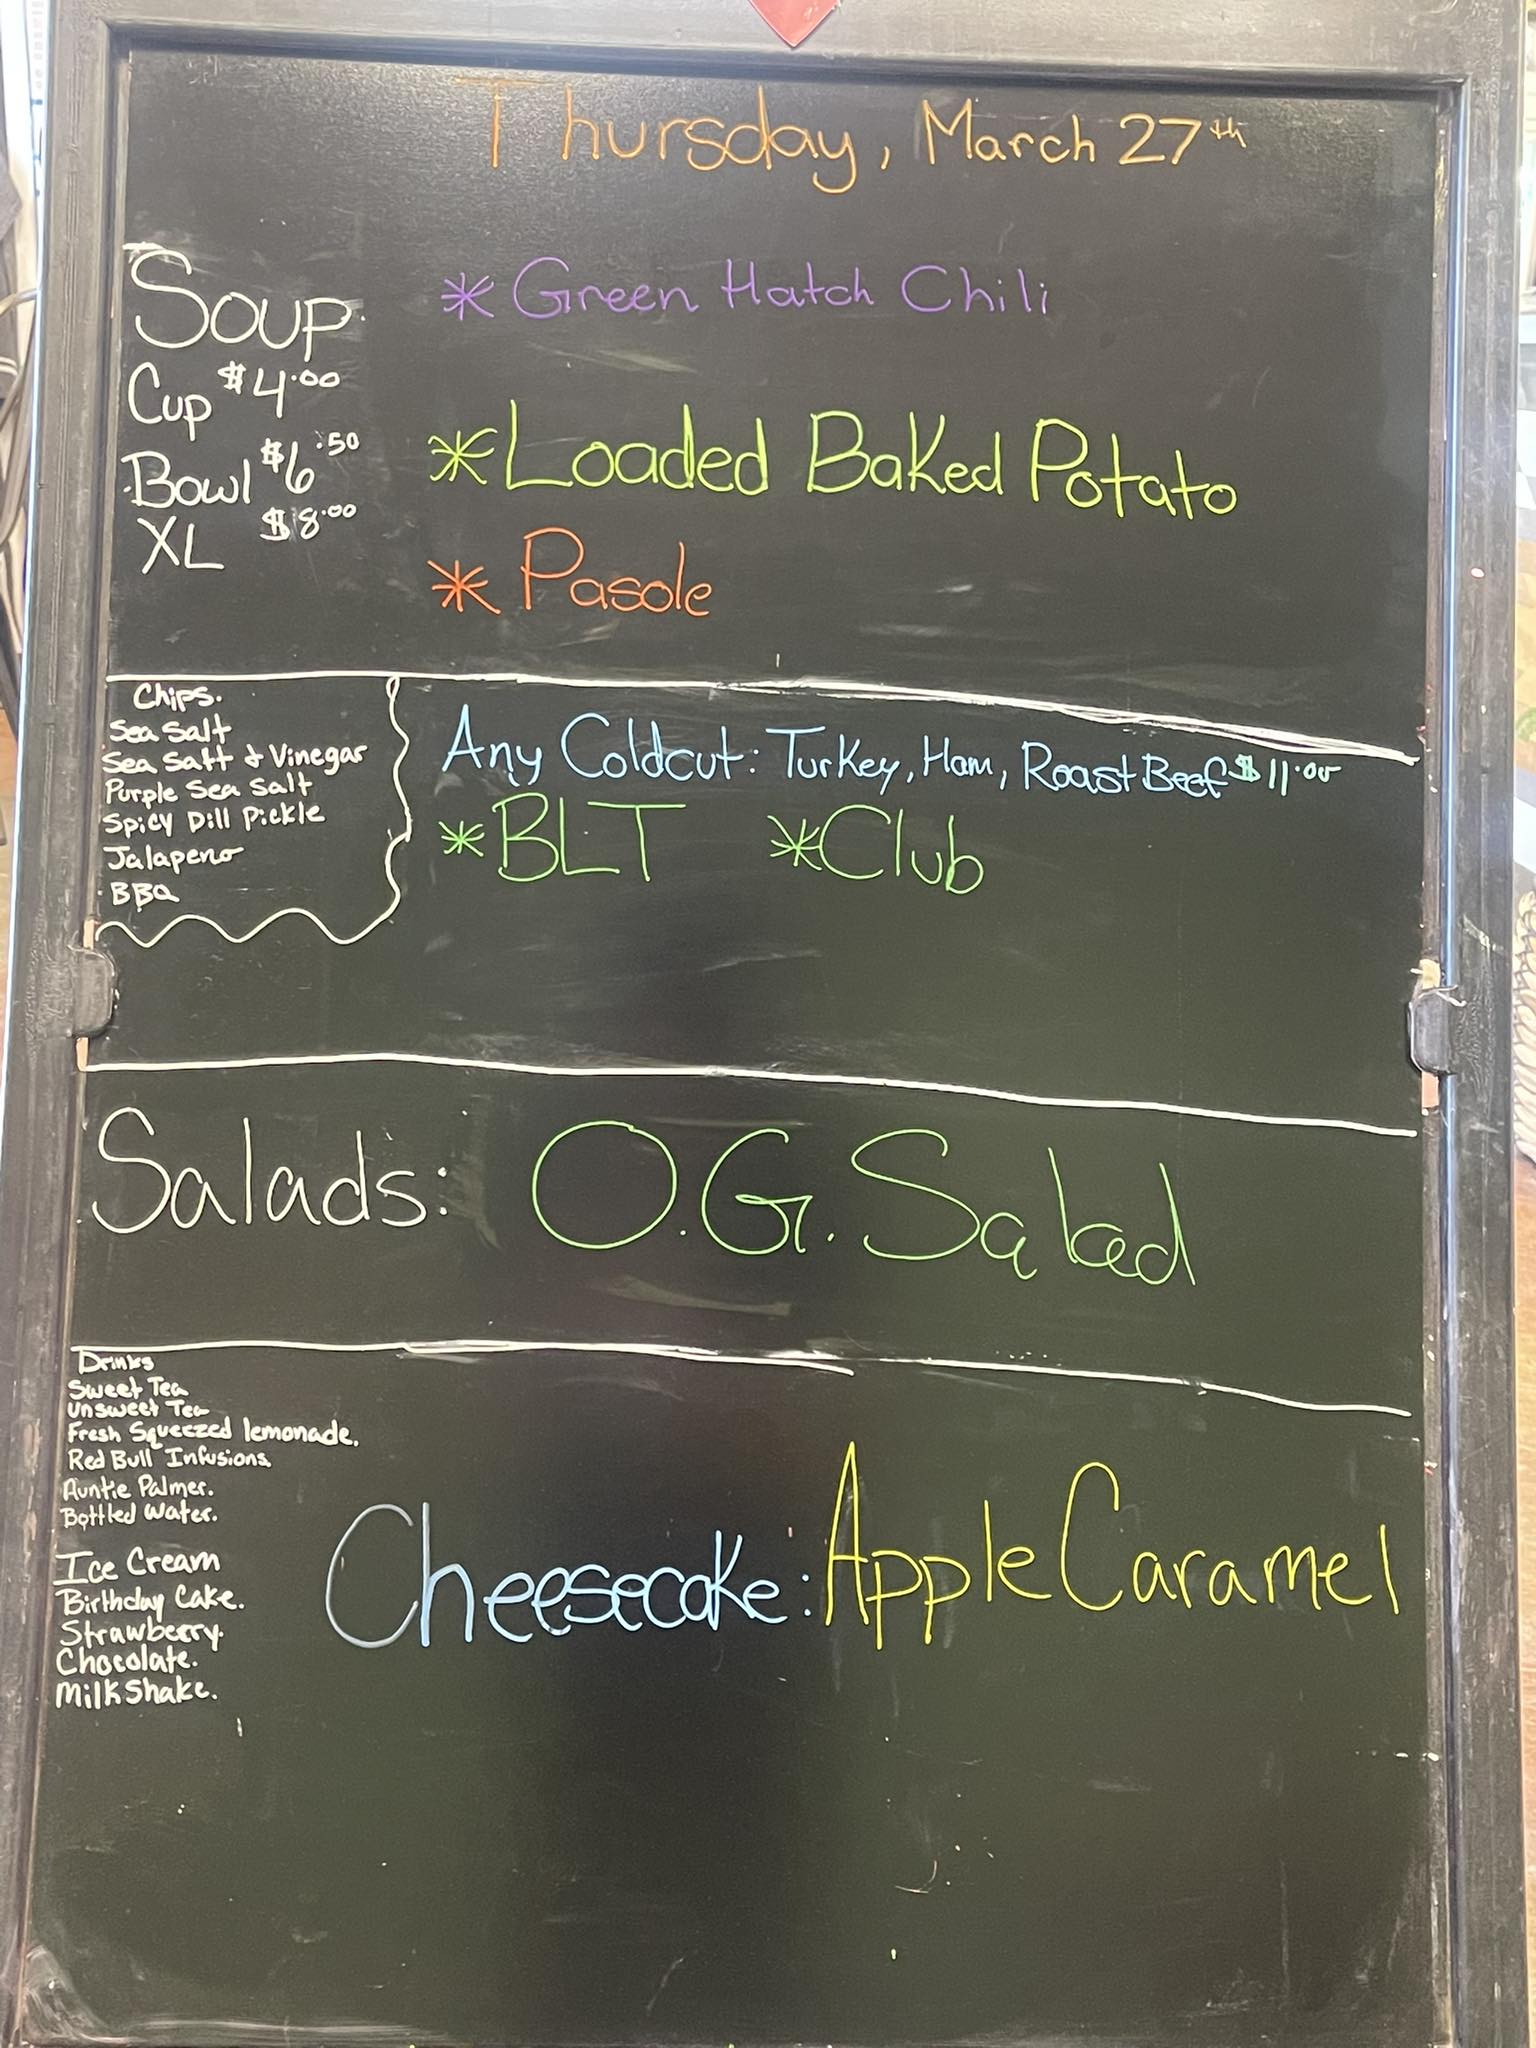 Thursday, March 27th
Soup
Cup $4.00
Bowl $6.50
XL $8.00
* Green Hatch Chili
* Loaded Baked Potato
* Pasole
Chips.
Sea Salt
Sea Salt & Vinegar
Purple Sea Salt
Spicy Dill Pickle
Jalapeno
BBQ
Any Coldcut: Turkey, Ham, Roast Beef $11.00
* BLT * Club
Salads: O.G. Salad
Drinks
Sweet Tea
Unsweet Tea
Fresh Squeezed lemonade.
Red Bull Infusions.
Auntie Palmer.
Bottled Water.
Ice Cream
Birthday Cake.
Strawberry.
Chocolate.
MilkShake.
Cheesecake: Apple Caramel